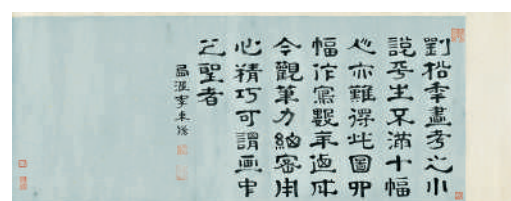 劉松年畫考之小
說平生不滿十幅
亦難得此圖四
幅作寫數年迺成
今觀筆力細密用
心精巧可謂畫中
之聖者
西涯李東陽